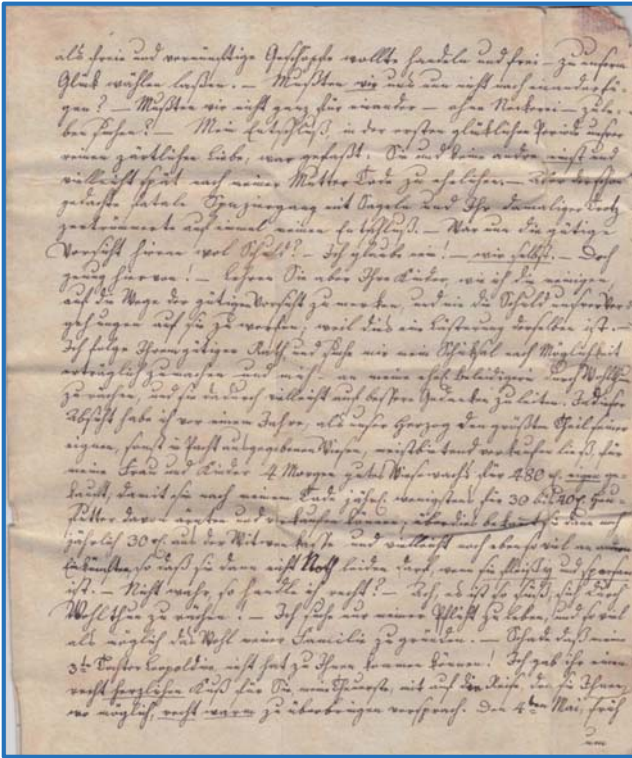 als freie und vernünftige Geschöpfe wollte handeln und frei – zu unserm
Glük wählen laßen. – Mußten wir uns nun nicht nach einander fü-
gen? – Mußten wir nicht ganz für einander – ohne Neckerei – zu le-
ben suchen? – Mein Entschluß, in der ersten glüklichen Periode unsrer
reinen zärtlichen Liebe, war gefaßt: Sie und keine andre, einst und
vielleicht spät nach meiner Mutter Tode zu ehelichen. – Aber der schon
gedachte fatale Spaziergang mit und Ihr damaliger Trotz
zertrümmerte auf einmal meinen Entschluß. – War nun die gütige
Vorsicht hieran wol Schuld? – Ich glaube nein! – wir selbst. – Doch
genug hiervon! – Lehren Sie aber Ihre Kinder, wie ich die meinigen,
auf die Wege der gütigen Vorsicht zu merken, und nie die Schuld unsrer Ver-
gehungen auf sie zu werfen; weil dies eine Lästerung derselben ist. –
Ich folge Ihrem gütigen Rath, und suche mir mein Schiksal nach Möglichkeit
erträglich zu machen und mich – an meine Beleidigerin durch Wohlthun
zu rächen, und sie dadurch vielleicht auf bessere Gedanken zu leiten. In dieser
Absicht habe ich vor einem Jahre, als unser Herzog den größten Theil seiner
eignen, sonst in Pacht ausgegebenen Wiesen, meistbietend verkaufen ließ, für
meine Frau und Kinder 4 Morgen gutes Wiesewachs für 480 eigen ge-
kauft, damit sie nach meinem Tode jährl. wenigstens für 30 bis 40 Heu-
futter davon ärnten und verkaufen können; überdies bekommt sie dann noch
jährlich 30 aus der Witwenkasse und vielleicht noch ebenso viel an
Einkünften, so daß sie dann nicht Noth leiden darf, wenn sie fleißig und sparsam
ist. – Nicht wahr, so handle ich recht? – Ach, es ist so süß, sich durch
Wohlthun zu rächen! – Ich suche nur meiner Pflicht zu leben, und so viel
als möglich das Wohl meiner Familie zu gründen. – Schade daß meine
3te Tochter Leopoldine nicht hat zu Ihnen kommen können! Ich gab ihr einen
recht herzlichen Kuß für Sie, meine Theuerste, mit auf die Reise, den sie Ihnen,
wo möglich, recht warm zu überbringen versprach. Den 4ten Mai, früh
um